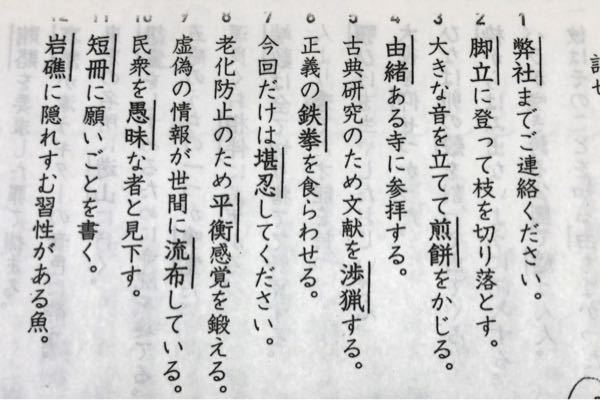 1 弊社までご連絡ください。
2 脚立に登って枝を切り落とす。
3 大きな音を立てて煎餅をかじる。
4 由緒ある寺に参拝する。
5 古典研究のため文献を渉猟する。
6 正義の鉄拳を食らわせる。
7 今回だけは堪忍してください。
8 老化防止のため平衡感覚を鍛える。
9 虚偽の情報が世間に流布している。
10 民衆を愚昧な者と見下す。
11 短冊に願いごとを書く。
12 岩礁に隠れすむ習性がある魚。